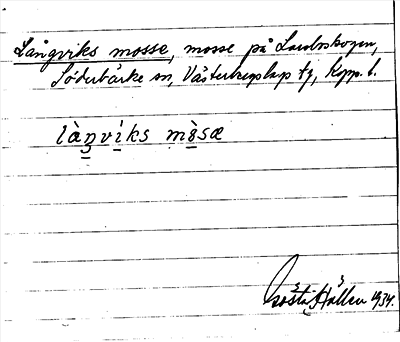 Långviks mosse, mosse på
Söderbärke sn, Västerbergslags tg, Kopp. l.
làŋvìks mòsæ
Gösta Hållen 1934.